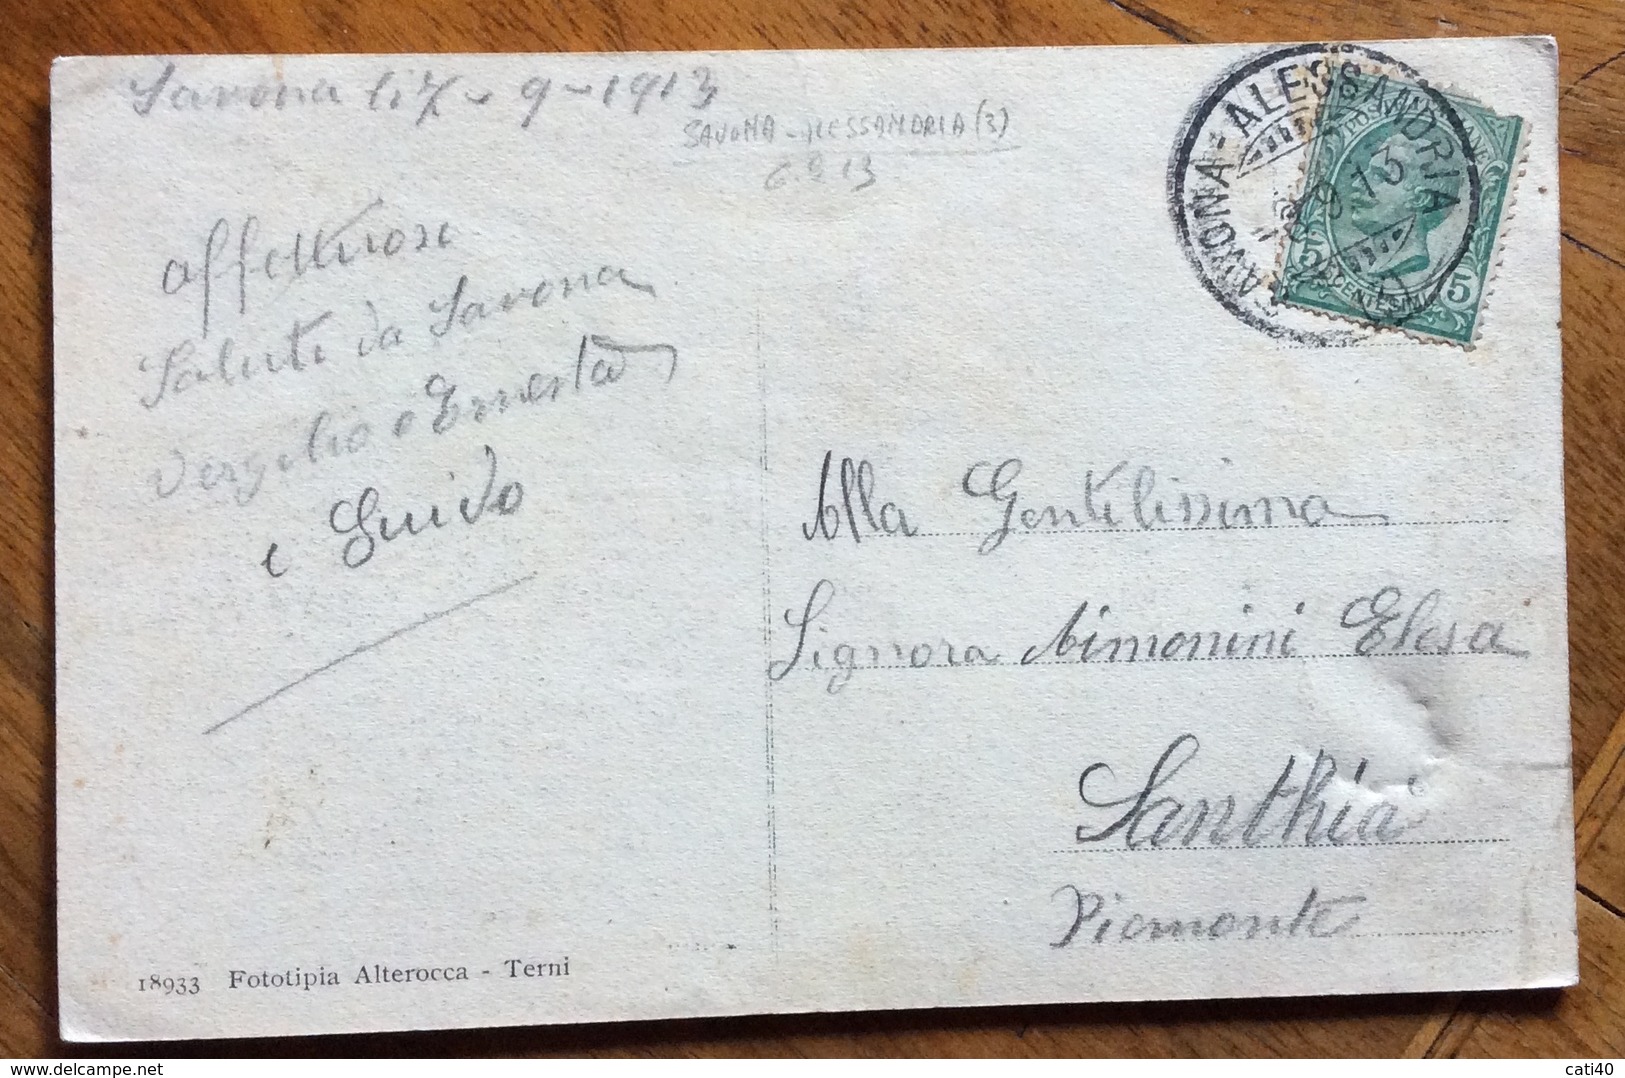 Savona li 7 - 9 - 1913
SAVONA - ALESSANDRIA (3)
6.9.13
affettuosi
Saluti da Savona
Vergilio e Ernesta
e Guido
SAVONA - ALESSANDRIA
9.13
POSTE
CENTESIMI
5 5
Alla Gentilissima
Signora Simonini Elesa
Santhià
Piemonte
18933 Fototipia Alterocca - Terni
cati40